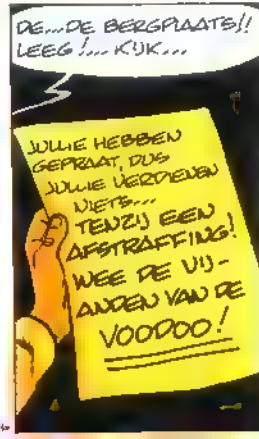 DE...DE BERGPLAATS!!
LEEG!... KIJK...
JULLIE HEBBEN
GEPRAAT, DUS
JULLIE VERDIENEN
NIETS...
TENZIJ EEN
AFSTRAFFING!
WEE DE VIJ-
ANDEN VAN DE
VOODOO!